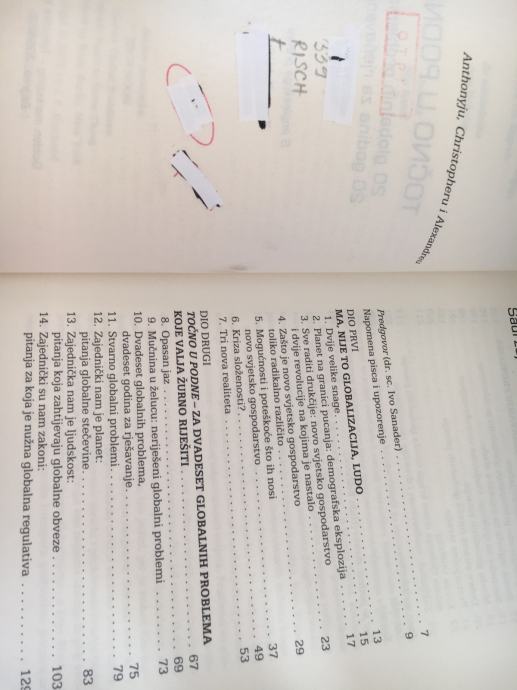 Anthonyju, Christopheru i Alexandreu
339
RISCH
t
Sadržaj
Predgovor (dr. sc. Ivo Sanader) . . . . . 7
Napomena pisca i upozorenje . . . . . 9
DIO PRVI
MA, NIJE TO GLOBALIZACIJA, LUDO . . . . . 13
1. Dvije velike snage . . . . . 15
2. Planet na granici pucanja: demografska eksplozija . . . . . 17
3. Sve raditi drukčije: novo svjetsko gospodarstvo
i dvije revolucije na kojima je nastalo . . . . . 23
4. Zašto je novo svjetsko gospodarstvo
toliko radikalno različito . . . . . 29
5. Mogućnosti i poteškoće što ih nosi
novo svjetsko gospodarstvo . . . . . 37
6. Kriza složenosti? . . . . . 49
7. Tri nova realiteta . . . . . 53
DIO DRUGI
TOČNO U PODNE – ZA DVADESET GLOBALNIH PROBLEMA
KOJE VALJA ŽURNO RIJEŠITI . . . . . 67
8. Opasan jaz . . . . . 69
9. Mučnina u želucu: neriješeni globalni problemi . . . . . 73
10. Dvadeset globalnih problema,
dvadeset godina za rješavanje . . . . . 75
11. Stvarni globalni problemi . . . . . 79
12. Zajednički nam je planet:
pitanja globalne stečevine . . . . . 83
13. Zajednička nam je ljudskost:
pitanja koja zahtijevaju globalne obveze . . . . . 103
14. Zajednički su nam zakoni:
pitanja za koja je nužna globalna regulativa . . . . . 129